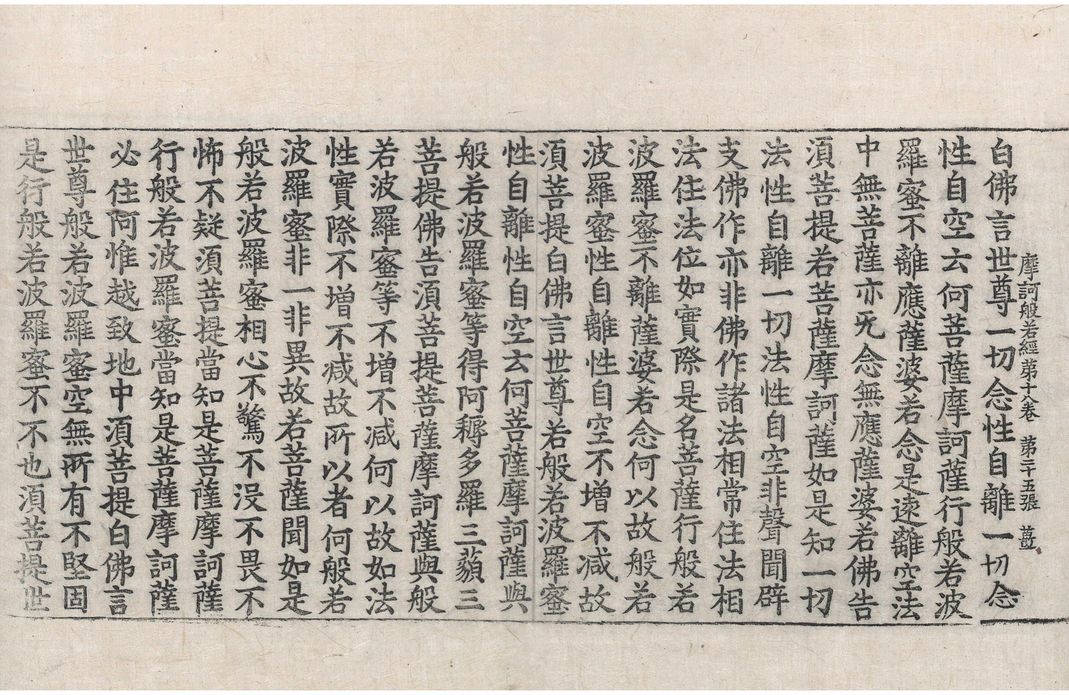 摩訶般若經第十八卷 第二十五張 薑
白佛言世尊一切念性自離一切念
性自空云何菩薩摩訶薩行般若波
羅蜜不離應薩婆若念是遠離空法
中無菩薩亦无念無應薩婆若佛告
須菩提若菩薩摩訶薩如是知一切
法性自離一切法性自空非聲聞辟
支佛作亦非佛作諸法相常住法相
法住法位如實際是名菩薩行般若
波羅蜜不離薩婆若念何以故般若
波羅蜜性自離性自空不増不减故
須菩提白佛言世尊若般若波羅蜜
性自離性自空云何菩薩摩訶薩與
般若波羅蜜等得阿耨多羅三藐三
菩提佛告須菩提菩薩摩訶薩與般
若波羅蜜等不増不减何以故如法
性實際不増不减故所以者何般若
波羅蜜非一非異故若菩薩聞如是
般若波羅蜜相心不驚不没不畏不
怖不疑須菩提當知是菩薩摩訶薩
行般若波羅蜜當知是菩薩摩訶薩
必住阿惟越致地中須菩提白佛言
世尊般若波羅蜜空無所有不堅固
是行般若波羅蜜不不也須菩提世